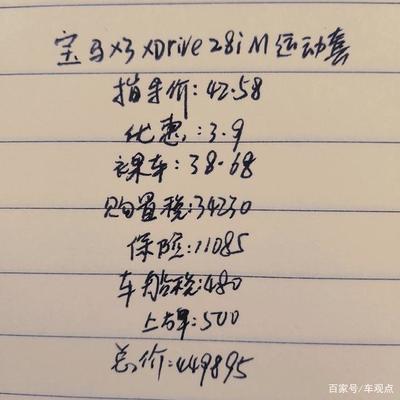 宝马X3 xDrive 28i M运动套
指导价:42.58
优惠:3.9
裸车:38.68
购置税:34230
保险:11085
车船税:480
上牌:500
总价:449895
百家号/车观点